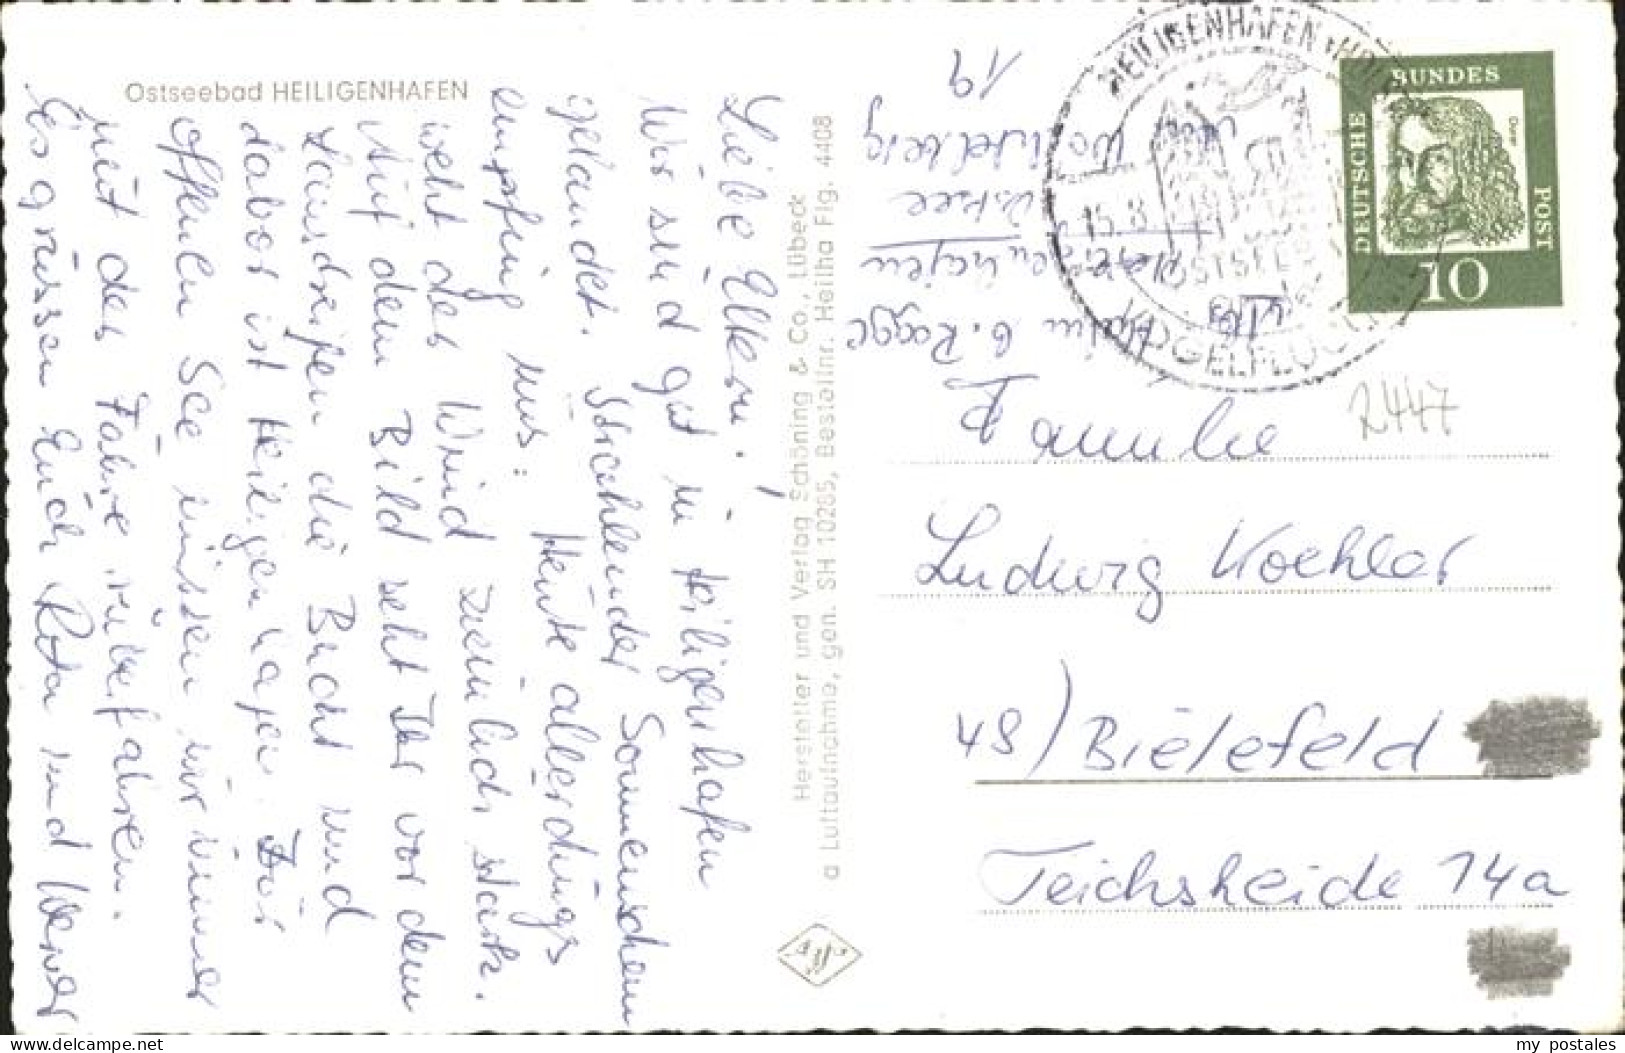 Ostseebad HEILIGENHAFEN
Liebe Eltern!
Wir sind gut in Heiligenhafen
gelandet. Strahlender Sonnenschein
empfing uns. Heute allerdings
weht der Wind ziemlich stark.
Auf dem Bild seht Ihr vor dem
Landstreifen die Bucht und
davor ist Heiligenhafen. Zur
offenen See müssen wir immer
mit der Fähre rüberfahren.
Es grüssen Euch Rita und Werner
Hersteller und Verlag Schöning & Co., Lübeck
a Luftaufnahme, gen. SH 10285, Bestellnr. Heilha Flg. 4408
Agfa
HEILIGENHAFEN
15.8.
OSTSEE
VOGELFLUG
DEUTSCHE
BUNDES
POST
Dürer
10
19
b. Ragge
2447
Familie
Ludwig Koehler
48) Bielefeld
Teichsheide 14a
www.delcampe.net
my_postales